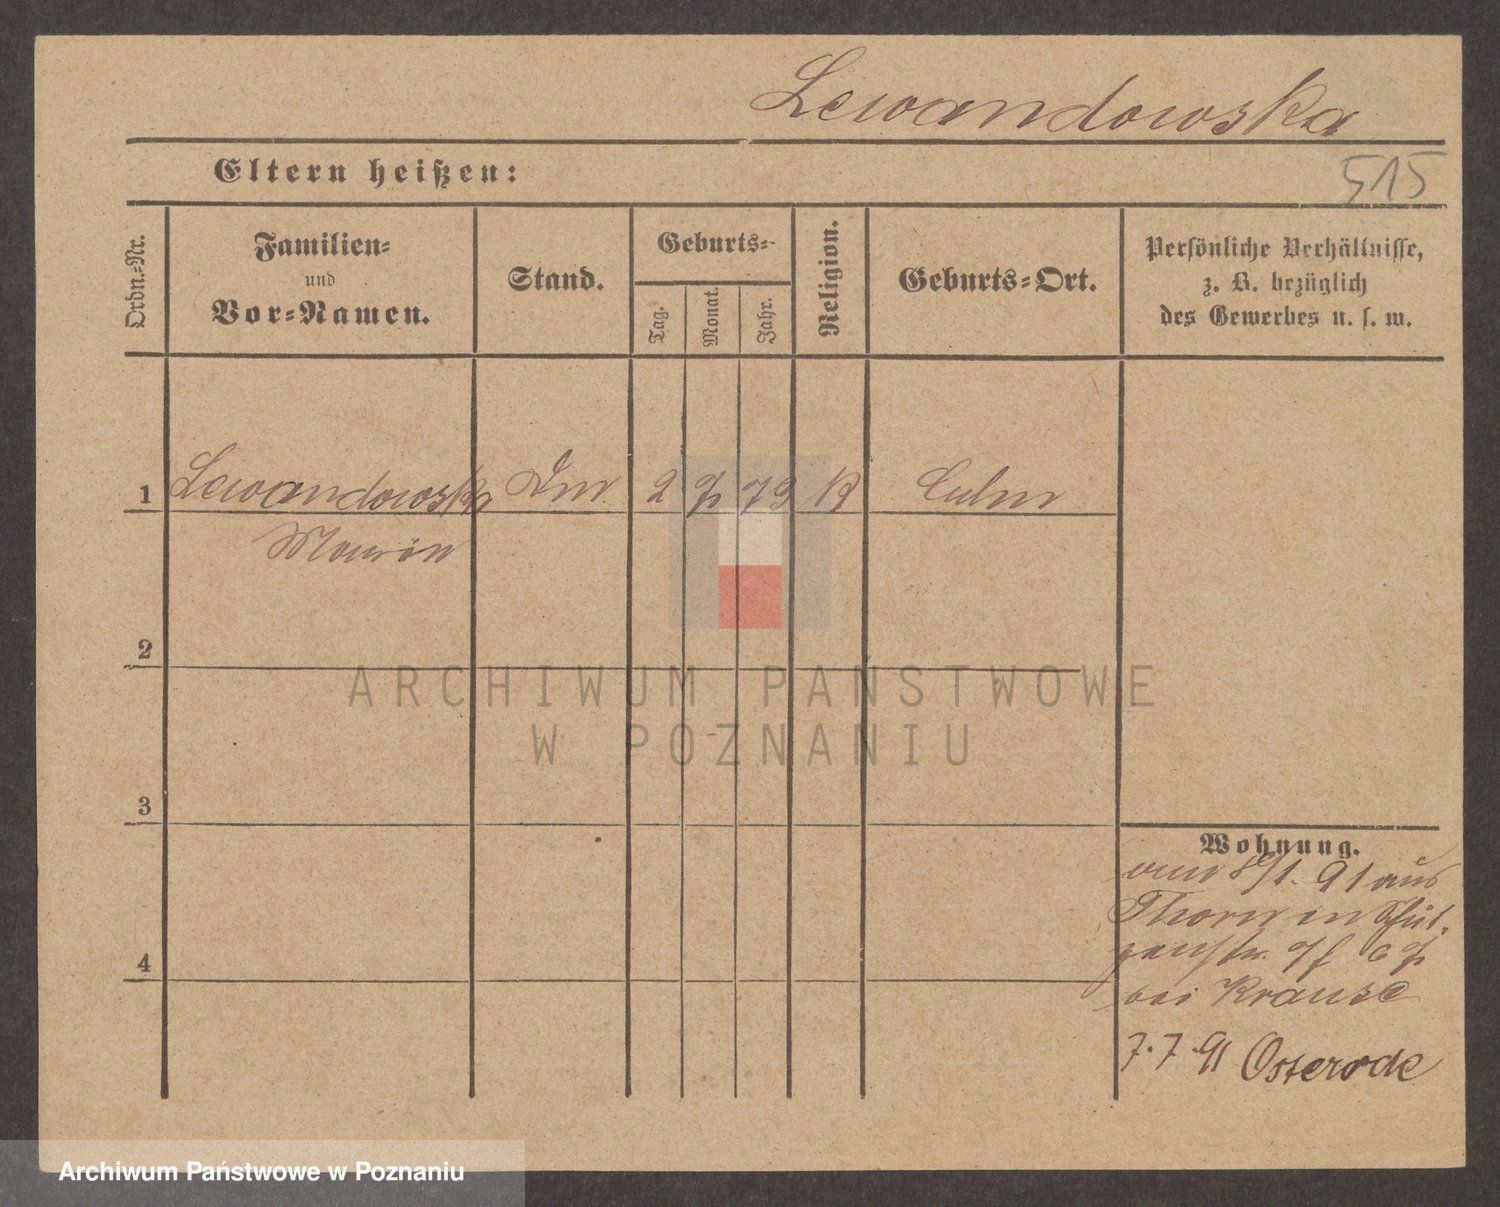 Lewandowska
Eltern heißen:
515
Ordn.-Nr.
Familien-
und
Vor-Namen.
Stand.
Geburts-
Tag.
Monat.
Jahr.
Religion.
Geburts-Ort.
Persönliche Verhältnisse,
z. B. bezüglich
des Gewerbes u. s. w.
1 Lewandowska 2 73 K Culm
2
3
4
Wohnung.
am 8/1. 91 aus
Thorn in Schüt-
zenstr.
bei Krause
7.7.91 Osterode
ARCHIWUM PAŃSTWOWE
W POZNANIU
Archiwum Państwowe w Poznaniu